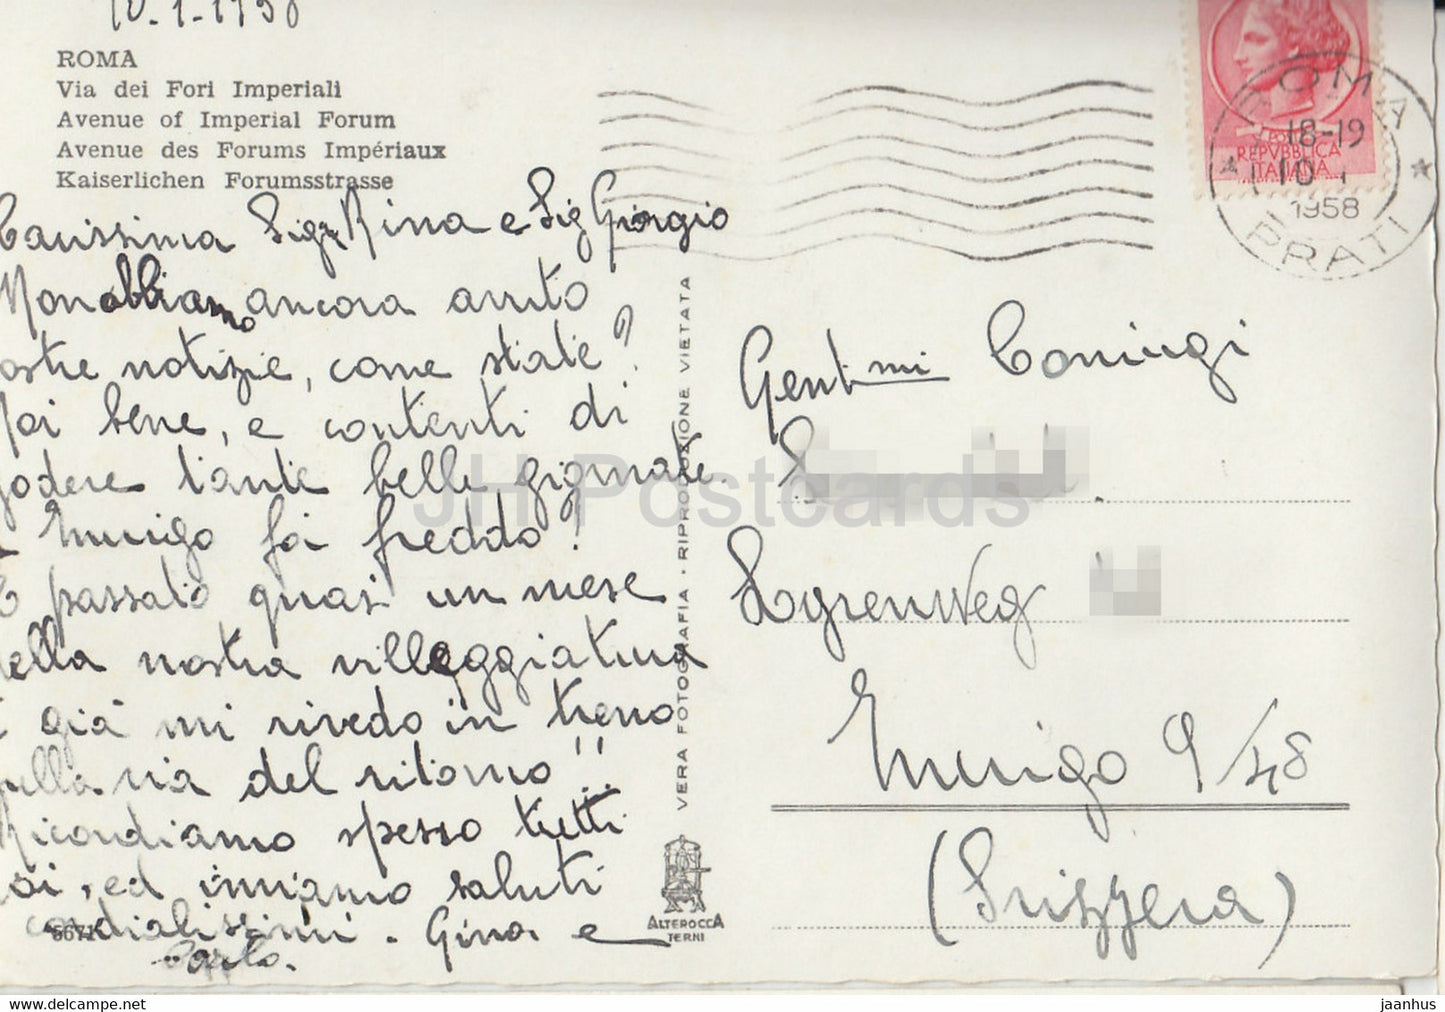 10.1-1958
ROMA
Via dei Fori Imperiali
Avenue of Imperial Forum
Avenue des Forums Impériaux
Kaiserlichen Forumsstrasse
Carissima Sigra Rina e Sig Giorgio
Non abbiamo ancora avuto
ostre notizie, come state?
Noi bene, e contenti di
godere tante belle giornate.
Zurigo fa freddo?
E passato quasi un mese
della nostra villeggiatura
e già mi rivedo in treno
sulla via del ritorno!!...
Ricordiamo spesso tutti
oi, ed inviamo saluti
cordialissimi. Gina e
Carlo.
5671
VERA FOTOGRAFIA · RIPRODUZIONE VIETATA
ALTEROCCA
TERNI
POSTE
REPVBBLICA
ITALIANA
ROMA
18-19
10
1958
PRATI
Gentmi Coniugi
Zurigo 9/48
(Svizzera)
JH Postcards
hipstamp.com
jaanhus